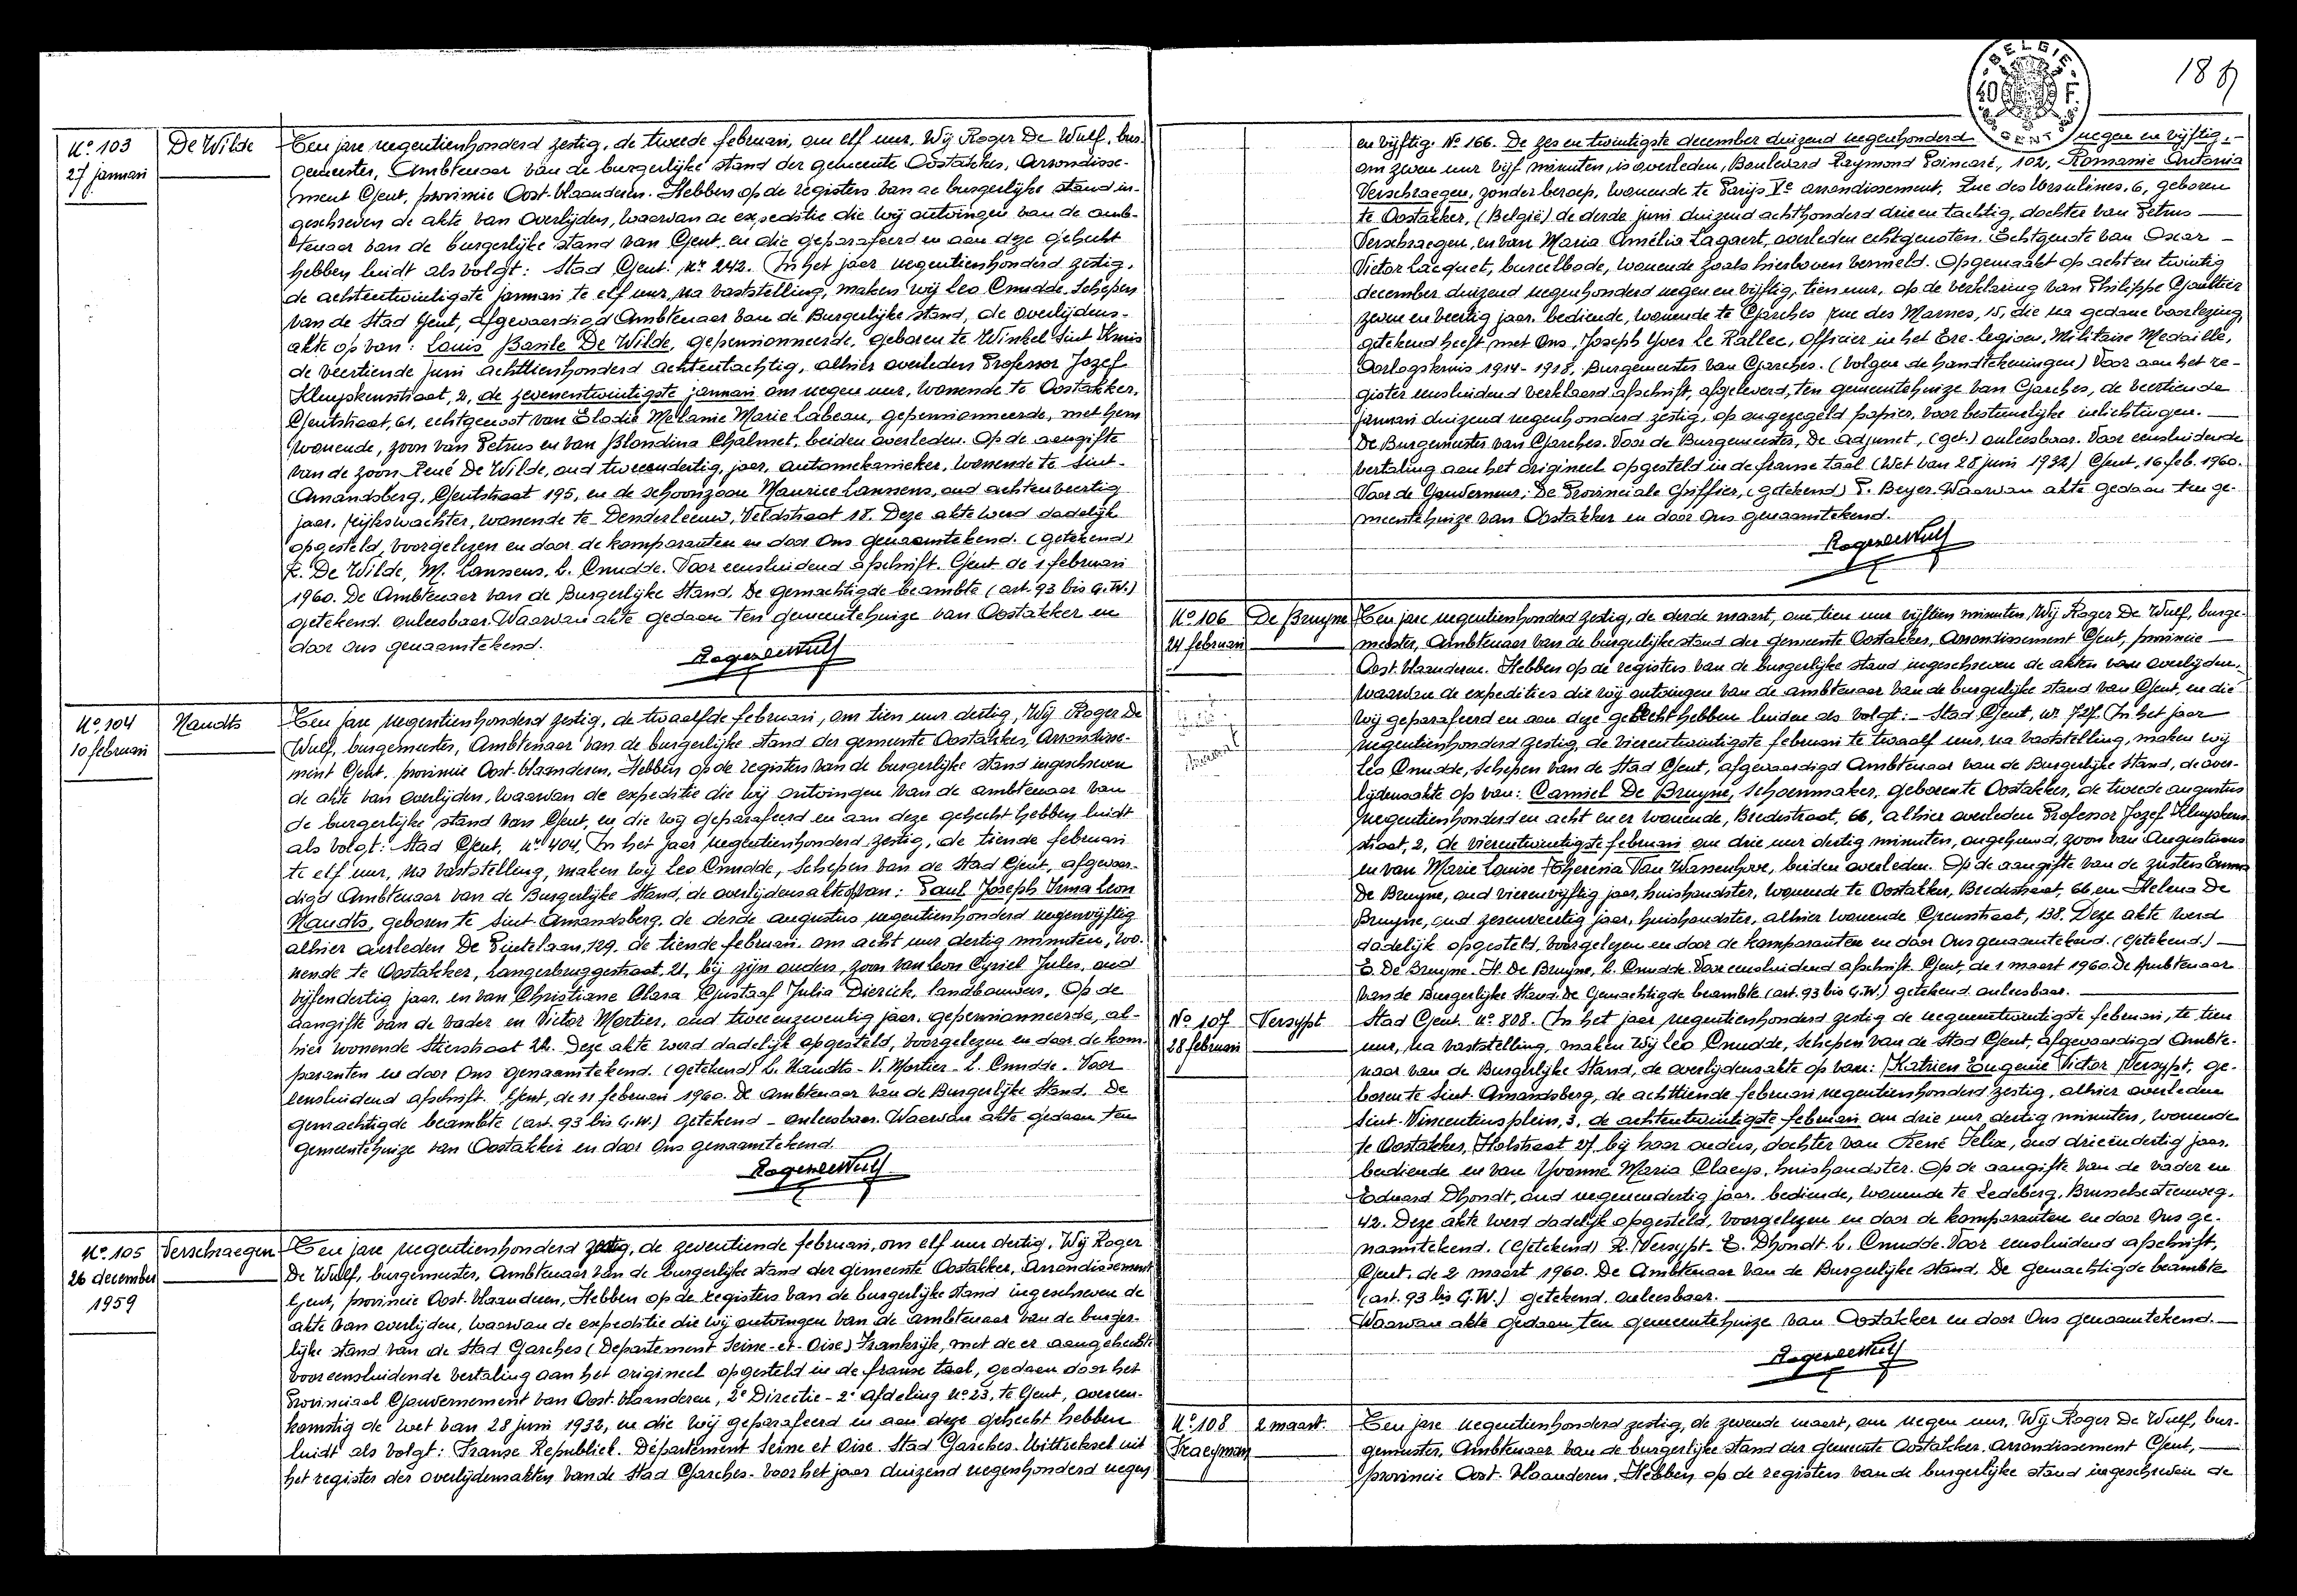 Nº 103
27 januari
De Wilde
Ten jare negentienhonderd zestig, de tweede februari, om elf uur, Wij Roger De Wulf, bur-
gemeester, Ambtenaar van de burgerlijke stand der gemeente Oostakker, Arrondisse-
ment Gent, provincie Oost-Vlaanderen. Hebben op de registers van de burgerlijke stand in-
geschreven de akte van overlijden, waarvan de expeditie die wij ontvingen van de amb-
tenaar van de burgerlijke stand van Gent, en die geparafeerd en aan deze gehecht
hebben luidt als volgt: Stad Gent. Nr 242. In het jaar negentienhonderd zestig,
de achtentwintigste januari te elf uur, na vaststelling, maken wij Leo Cnudde, Schepen
van de Stad Gent, afgevaardigd Ambtenaar van de Burgerlijke stand, de overlijdens-
akte op van: Louis Basile De Wilde, gepensionneerde, geboren te Winkel Sint Kruis
de veertiende juni achttienhonderd achtentachtig, alhier overleden Professor Jozef
Kluyskensstraat, 2, de zevenentwintigste januari om negen uur, wonende te Oostakker,
Gentstraat, 61, echtgenoot van Elodie Melanie Marie Labeau, gepensionneerde, met hem
wonende, zoon van Petrus en van Blondina Chalmet, beiden overleden. Op de aangifte
van de zoon René De Wilde, oud tweeendertig, jaar, automekanieker, wonende te Sint-
Amandsberg, Gentstraat 195, en de schoonzoon Maurice Lanssens, oud achtenveertig
jaar, rijkswachter, wonende te Denderleeuw, Veldstraat 18. Deze akte werd dadelijk
opgesteld, voorgelezen en door de komparanten en door Ons genaamtekend. (getekend)
R. De Wilde, M. Lanssens, L. Cnudde. Voor eensluidend afschrift. Gent de 1 februari
1960. De Ambtenaar van de Burgerlijke Stand, De gemachtigde beambte (art. 93 bis G.W.)
getekend. onleesbaar. Waarvan akte gedaan ten gemeentehuize van Oostakker en
door Ons genaamtekend.
Roger De Wulf
Nº 104
10 februari
Naudts
Ten jare negentienhonderd zestig, de twaalfde februari, om tien uur dertig, Wij Roger De
Wulf, burgemeester, Ambtenaar van de burgerlijke stand der gemeente Oostakker, Arrondisse-
ment Gent, provincie Oost-Vlaanderen, Hebben op de registers van de burgerlijke stand ingeschreven
de akte van overlijden, waarvan de expeditie die wij ontvingen van de ambtenaar van
de burgerlijke stand van Gent, en die wij geparafeerd en aan deze gehecht hebben luidt
als volgt: Stad Gent, nr 404. In het jaar negentienhonderd zestig, de tiende februari
te elf uur, na vaststelling, maken wij Leo Cnudde, Schepen van de Stad Gent, afgevaar-
digd Ambtenaar van de Burgerlijke Stand, de overlijdensakte op van: Paul Joseph Irma Leon
Naudts, geboren te Sint-Amandsberg, de derde augustus negentienhonderd negenvijftig
alhier overleden De Pintelaan, 129, de tiende februari, om acht uur dertig minuten, wo-
nende te Oostakker, Langerbruggestraat, 21, bij zijn ouders, zoon van Leon Cyriel Jules, oud
vijfendertig jaar, en van Christiane Clara Gustaaf Julia Dierick, landbouwers. Op de
aangifte van de vader en Victor Mortier, oud tweeenzeventig jaar, gepensionneerde, al-
hier wonende Stierstraat 22. Deze akte werd dadelijk opgesteld, voorgelezen en door de kom-
paranten en door Ons genaamtekend. (getekend) L. Naudts - V. Mortier - L. Cnudde. Voor
eensluidend afschrift. Gent, de 11 februari 1960. De ambtenaar van de Burgerlijke Stand. De
gemachtigde beambte (art. 93 bis G.W.) getekend - onleesbaar. Waarvan akte gedaan ten
gemeentehuize van Oostakker en door Ons genaamtekend.
Roger De Wulf
Nº 105
26 december
1959
Verschraegen
Ten jare negentienhonderd zestig, de zeventiende februari, om elf uur dertig, Wij Roger
De Wulf, burgemeester, Ambtenaar van de burgerlijke stand der gemeente Oostakker, Arrondissement
Gent, provincie Oost-Vlaanderen, Hebben op de registers van de burgerlijke stand ingeschreven de
akte van overlijden, waarvan de expeditie die wij ontvingen van de ambtenaar van de burger-
lijke stand van de Stad Garches (Departement Seine-et-Oise) Frankrijk, met de er aangehechte
voor eensluidende vertaling aan het origineel opgesteld in de franse taal, gedaan door het
Provinciaal Gouvernement van Oost-Vlaanderen, 2e Directie - 2e afdeling Nº 23, te Gent, overeen-
komstig de wet van 28 juni 1932, en die wij geparafeerd en aan deze gehecht hebben
luidt als volgt: Franse Republiek. Département Seine et Oise. Stad Garches. Uittreksel uit
het register der overlijdensakten van de Stad Garches. Voor het jaar duizend negenhonderd negen
BELGIE
40 F.
GENT
189
en vijftig. Nº 166. De zes en twintigste december duizend negenhonderd negen en vijftig,
om zeven uur vijf minuten, is overleden, Boulevard Raymond Poincaré, 102, Romanie Antonia
Verschraegen, zonder beroep, wonende te Parijs Ve arrondissement, Rue des Ursulines, 6, geboren
te Oostakker, (België) de derde juni duizend achthonderd drie en tachtig, dochter van Petrus
Verschraegen, en van Maria Amélia Lagaert, overleden echtgenoten. Echtgenote van Oscar
Victor Lacquet, bureelbode, wonende zoals hierboven vermeld. Opgemaakt op acht en twintig
december duizend negenhonderd negen en vijftig, tien uur, op de verklaring van Philippe Gaultier
zeven en veertig jaar, bediende, wonende te Garches rue des Marnes, 15, die na gedane voorlezing
getekend heeft met Ons, Joseph Yver Le Rallec, Officier in het Ere-Legioen, Militaire Medaille,
Oorlogskruis 1914-1918, Burgemeester van Garches. (Volgen de handtekeningen) Voor aan het re-
gister eensluidend verklaard afschrift, afgeleverd, ten gemeentehuize van Garches, de veertiende
januari duizend negenhonderd zestig, op ongezegeld papier, voor bestuurlijke inlichtingen.
De Burgemeester van Garches. Voor de Burgemeester, De Adjunct, (get.) onleesbaar. Voor eensluidende
vertaling aan het origineel opgesteld in de franse taal (Wet van 28 juni 1932) Gent, 16 feb. 1960.
Voor de Gouverneur; De Provinciale Griffier, (getekend) P. Beyer. Waarvan akte gedaan ten ge-
meentehuize van Oostakker en door Ons genaamtekend.
Roger De Wulf
Nº 106
24 februari
De Bruyne
Ten jare negentienhonderd zestig, de derde maart, om tien uur vijftien minuten, Wij Roger De Wulf, burge-
meester, Ambtenaar van de burgerlijke stand der gemeente Oostakker, Arrondissement Gent, provincie
Oost-Vlaanderen. Hebben op de registers van de burgerlijke stand ingeschreven de akten van overlijden,
waarvan de expedities die wij ontvingen van de ambtenaar van de burgerlijke stand van Gent, en die
wij geparafeerd en aan deze gehecht hebben luiden als volgt: Stad Gent, nr 727. In het jaar
negentienhonderd zestig, de vierentwintigste februari te twaalf uur, na vaststelling, maken wij
Leo Cnudde, Schepen van de Stad Gent, afgevaardigd Ambtenaar van de Burgerlijke Stand, de over-
lijdensakte op van: Camiel De Bruyne, schoenmaker, geboren te Oostakker, de tweede augustus
negentienhonderd en acht en er wonende, Bredestraat, 66, alhier overleden Professor Jozef Kluyskens-
straat, 2, de vierentwintigste februari om drie uur dertig minuten, ongehuwd, zoon van Augustinus
en van Marie Louise Theresia Van Wassenhove, beiden overleden. Op de aangifte van de zusters Emma
De Bruyne, oud vierenvijftig jaar, huishoudster, wonende te Oostakker, Bredestraat, 66, en Helena De
Bruyne, oud zesenveertig jaar, huishoudster, alhier wonende Grensstraat, 138. Deze akte werd
dadelijk opgesteld, voorgelezen en door de komparanten en door Ons genaamtekend. (getekend.)
E. De Bruyne. H. De Bruyne, L. Cnudde. Voor eensluidend afschrift. Gent, de 1 maart 1960. De Ambtenaar
van de Burgerlijke Stand. De Gemachtigde beambte (art. 93 bis G.W.) getekend onleesbaar.
Nº 107
28 februari
Versypt
Stad Gent. Nº 808. In het jaar negentienhonderd zestig de negenentwintigste februari, te tien
uur, na vaststelling, maken Wij Leo Cnudde, Schepen van de Stad Gent, afgevaardigd Ambte-
naar van de Burgerlijke Stand, de overlijdensakte op van: Katrien Eugenie Victor Versypt, ge-
boren te Sint-Amandsberg, de achttiende februari negentienhonderd zestig, alhier overleden
Sint-Vincentiusplein, 3, de achtentwintigste februari om drie uur dertig minuten, wonende
te Oostakker, Holstraat 27, bij haar ouders, dochter van René Felix, oud drieëndertig jaar,
bediende en van Yvonne Maria Claeys, huishoudster. Op de aangifte van de vader en
Eduard Dhondt, oud negenendertig jaar, bediende, wonende te Ledeberg, Brusselsesteenweg,
42. Deze akte werd dadelijk opgesteld, voorgelezen en door de komparanten en door Ons ge-
naamtekend. (Getekend) R. Versypt - E. Dhondt. L. Cnudde. Voor eensluidend afschrift,
Gent, de 2 maart 1960. De Ambtenaar van de Burgerlijke stand. De gemachtigde beambte
(art. 93 bis G.W.) getekend. onleesbaar.
Waarvan akte gedaan ten gemeentehuize van Oostakker en door Ons genaamtekend.
Roger De Wulf
Nº 108
Traeyman
2 maart.
Ten jare negentienhonderd zestig, de zevende maart, om negen uur, Wij Roger De Wulf, bur-
gemeester, Ambtenaar van de burgerlijke stand der gemeente Oostakker, Arrondissement Gent,
provincie Oost-Vlaanderen, Hebben op de registers van de burgerlijke stand ingeschreven de